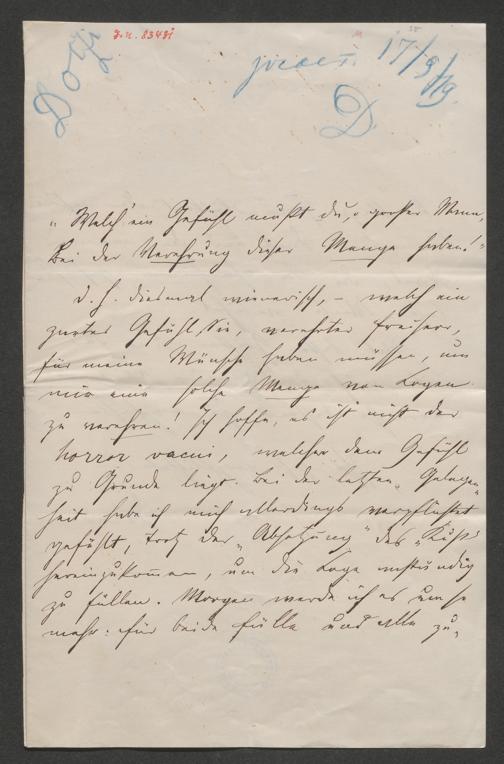 J.N. 83481
Dóczi
17/9/79.
D.
„Welch' ein Gefühl mußt du, o großer Mann,
Bei der Verehrung dieser Menge haben!"
d. h. diesmal wienerisch, – welch ein
zartes Gefühl Sie, verehrter Freiherr,
für meine Wünsche haben müssen, um
mir eine solche Menge von Logen
zu verehren! Ich hoffe, es ist nicht der
horror vacui, welcher dem Gefühl
zu Grunde liegt. Bei der letzten Gelegen-
heit habe ich mich allerdings verpflichtet
gefühlt, trotz der „Absetzung" des „Kuß"
hereinzukommen, um die Loge
zu füllen. Morgen werde ich es um so
mehr: für beide Fälle und alle zu-